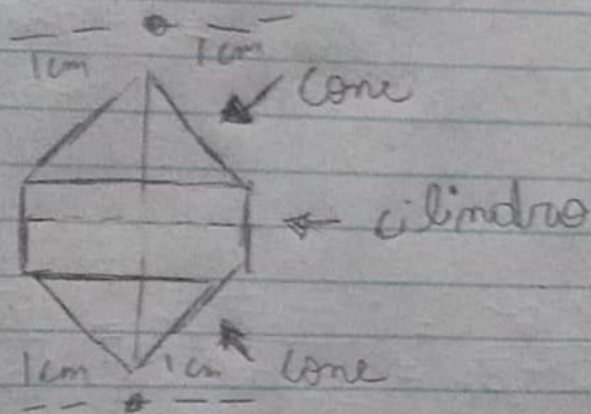 1cm 1cm
cone
cilindro
1cm 1cm cone